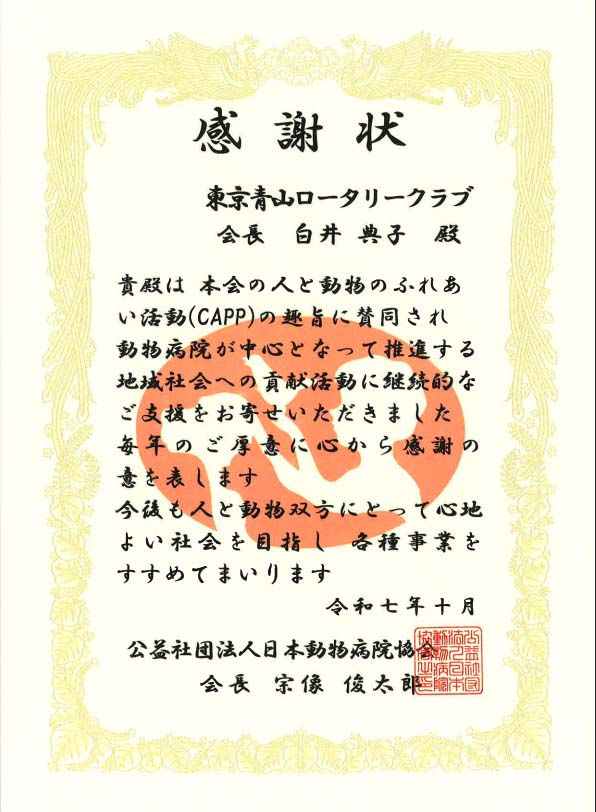 感謝状
東京青山ロータリークラブ
会長 白井 典子 殿
貴殿は 本会の人と動物のふれあ
い活動(CAPP)の趣旨に賛同され
動物病院が中心となって推進する
地域社会への貢献活動に継続的な
ご支援をお寄せいただきました
毎年のご厚意に心から感謝の
意を表します
今後も人と動物双方にとって心地
よい社会を目指し 各種事業を
すすめてまいります
令和七年十月
公益社団法人日本動物病院協会
会長 宗像 俊太郎
公益社団
法人日本
動物病院
協会之印